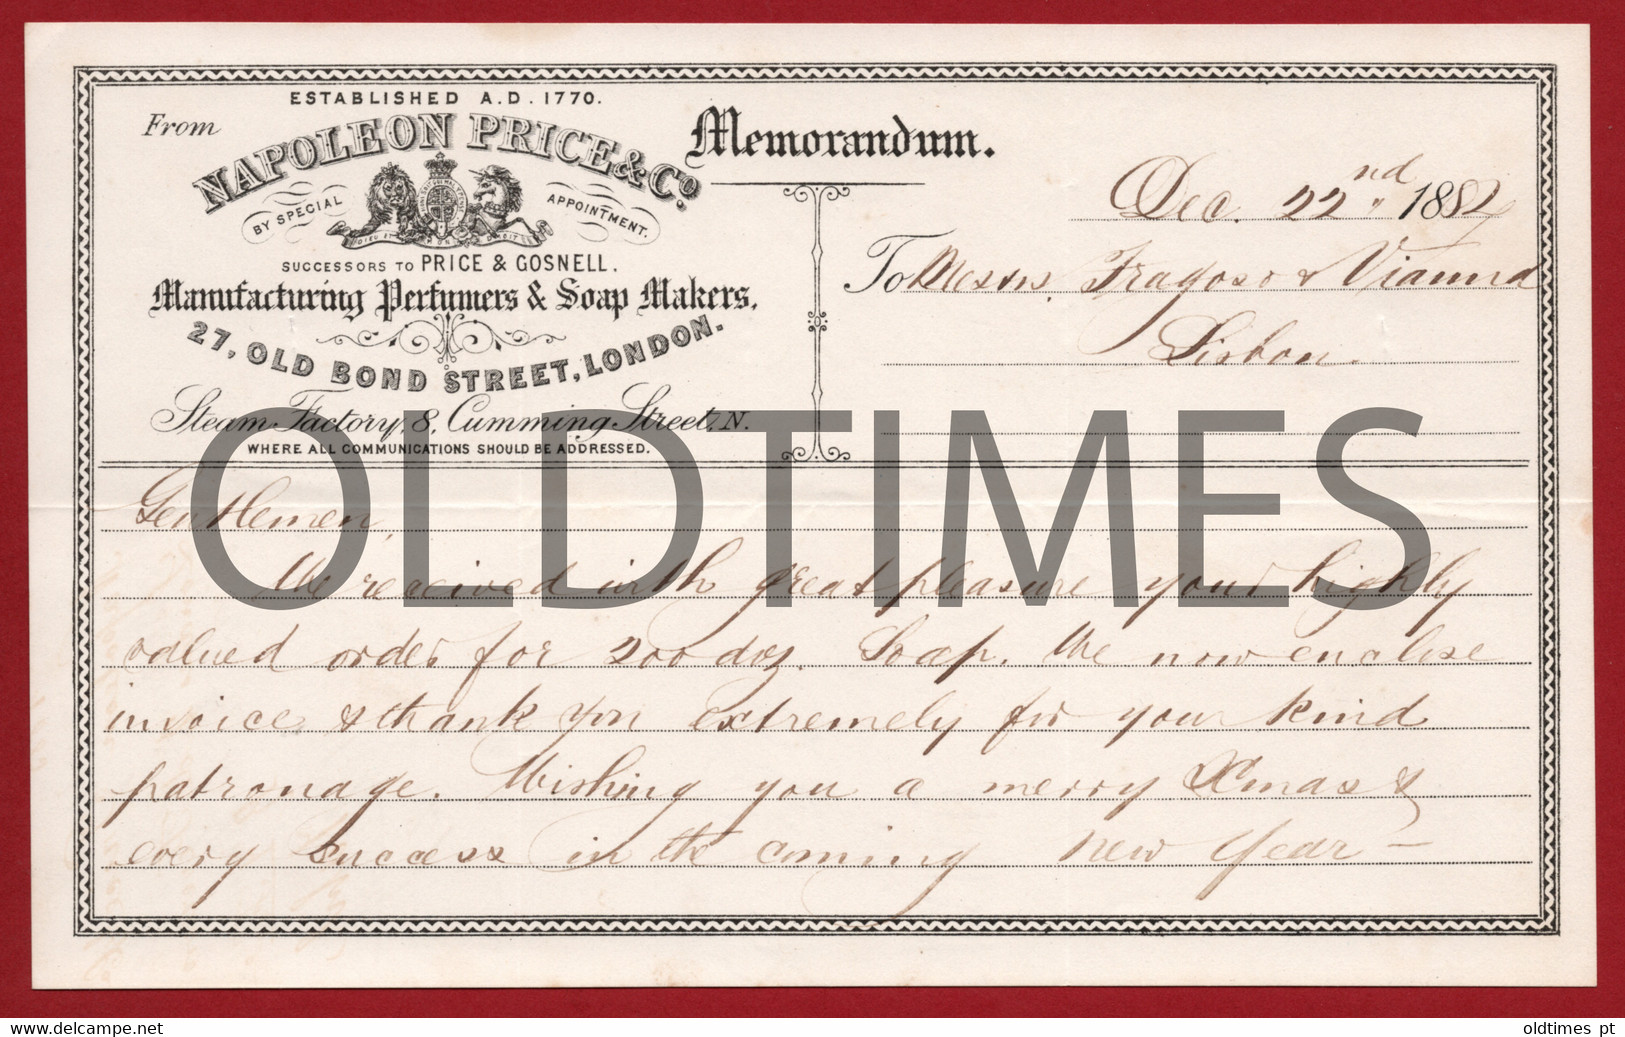 ESTABLISHED A.D. 1770.
From
NAPOLEON PRICE & Co.
BY SPECIAL APPOINTMENT.
DIEU ET MON DROIT
SUCCESSORS TO PRICE & GOSNELL.
Manufacturing Perfumers & Soap Makers.
27, OLD BOND STREET, LONDON.
Steam Factory, 8, Cumming Street, N.
WHERE ALL COMMUNICATIONS SHOULD BE ADDRESSED.
Memorandum.
Dec. 22nd 188
To Messrs. Fragoso & Vianna
Lisbon.
OLDTIMES
Gentlemen,
We received with great pleasure your highly
valued order for 200 doz. Soap. We now enclose
invoice & thank you extremely for your kind
patronage. Wishing you a merry Xmas &
every success in the coming new Year —
oldtimes pt